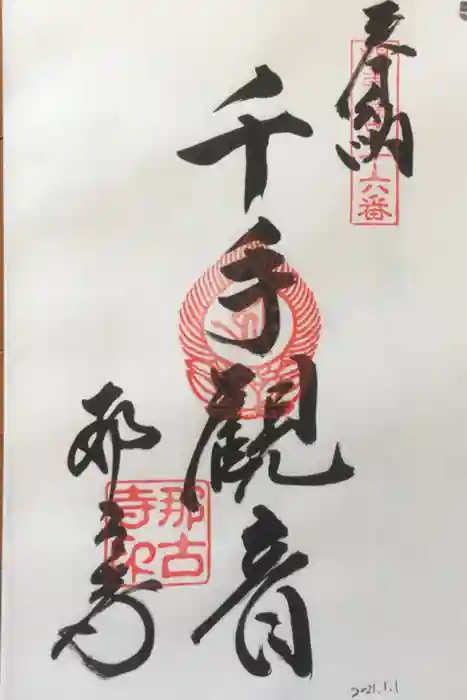 奉納
千手観音
那古寺
那古寺印
2021.1.1